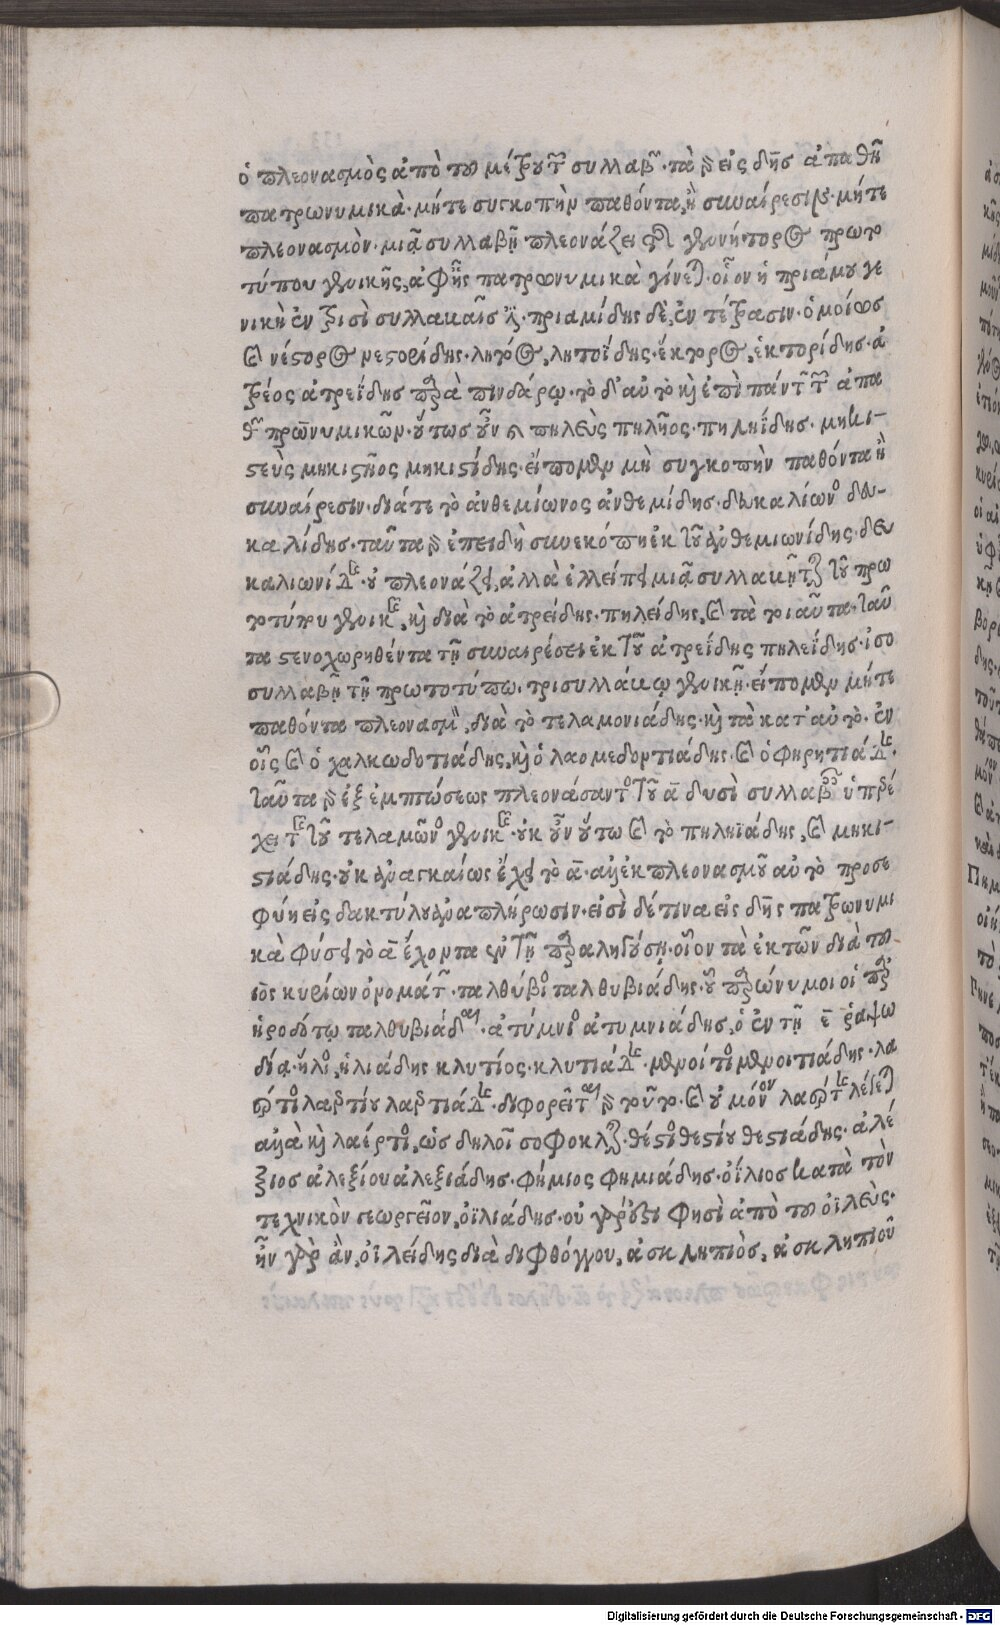 ὁ πλεονασμὸς ἀπὸ τοῦ μέτρου τῶν συλλαβῶν. τὰ γὰρ εἰς δης ἀπαθῆ
πατρωνυμικὰ. μήτε συγκοπὴν παθόντα, ἢ συναίρεσιν. μήτε
πλεονασμὸν. μιᾷ συλλαβῇ πλεονάζει τῆς γενικῆς τοῦ πρωτο
τύπου γενικῆς, ἀφ' ἧς πατρωνυμικὰ γίνεται. οἷον ἡ πριάμου γε
νικὴ ἐν τρισὶ συλλαβαῖς ἐστι. πριαμίδης δὲ, ἐν τέτρασιν. ὁμοίως
καὶ νέστορος νεστορίδης. λητός, λητοίδης. ἕκτορος, ἑκτορίδης. ἀ
τρέος ἀτρεΐδης παρὰ πινδάρῳ. τὸ δ' αὐτὸ καὶ ἐπὶ πάντων τῶν ἀπα
θῶν πατρωνυμικῶν. οὕτως οὖν καὶ πηλεὺς πηλῆος. πηληΐδης. μηκι-
στεὺς μηκιστῆος μηκιστίδης. εἴπομεν μὴ συγκοπὴν παθόντα ἢ
συναίρεσιν. διά τε τὸ ἀνθεμίωνος ἀνθεμίδης. δευκαλίωνος δευ-
καλίδης. ταῦτα γὰρ ἐπειδὴ συνεκόπη ἐκ τοῦ ἀνθεμιωνίδης. δευ
καλιωνίδης. οὐ πλεονάζει, ἀλλὰ ἐλλείπει μιᾷ συλλαβῇ τῆς τοῦ πρω
τοτύπου γενικῆς, καὶ διὰ τὸ ἀτρείδης. πηλείδης, καὶ τὰ τοιαῦτα. ταῦ
τα στενοχωρηθέντα τῇ συναιρέσει ἐκ τοῦ ἀτρεΐδης πηλεΐδης. ἰσο
συλλαβῆ τῇ πρωτοτύπῳ. τρισυλλάβῳ γενικῇ. εἴπομεν μήτε
παθόντα πλεονασμὸν, διὰ τὸ τελαμονιάδης. καὶ τὰ κατ' αὐτὸ. ἐν
οἷς καὶ ὁ χαλκωδοτιάδης, καὶ ὁ λαομεδοντιάδης. καὶ ὁ φηρητιάδης.
ταῦτα γὰρ ἐξ ἐμπτώσεως πλεονάσαντος τοῦ α δυσὶ συλλαβαῖς ὑπερέ
χει τῆς τοῦ τελαμῶνος γενικῆς. οὐκ οὖν οὕτω καὶ τὸ πηληϊάδης, καὶ μηκι-
στιάδης. οὐκ ἀναγκαίως ἔχει τὸ α. ἀλλ' ἐκ πλεονασμοῦ αὐτὸ προσε
φύη εἰς δακτύλου ἀναπλήρωσιν. εἰσὶ δέ τινα εἰς δης πατρωνυμι
κὰ φύσει τὸ α ἔχοντα ἐν τῇ παραληγούσῃ. οἷον τὰ ἐκ τῶν διὰ τοῦ
ιος κυρίων ὀνομάτων. ταλθύβιος ταλθυβιάδης. οὗ παρώνυμοι οἱ παρ'
ἡροδότῳ ταλθυβιάδαι. ἀτύμνιος ἀτυμνιάδης, ὁ ἐν τῇ ε ῥαψῳ
δίᾳ. ἥλιος, ἡλιάδης κλυτίος. κλυτιάδης. μενοίτιος μενοιτιάδης. λα
έρτιος λαερτίου λαερτιάδης. διφορεῖται γὰρ τοῦτο. καὶ οὐ μόνον λαέρτης λέγεται
ἀλλὰ καὶ λαέρτιος, ὡς δηλοῖ σοφοκλῆς. θέστιος θεστίου θεστιάδης. ἀλέ
ξιος ἀλεξίου ἀλεξιάδης. φήμιος φημιάδης. ὀΐλιος κατὰ τὸν
τεχνικὸν γεωργεῖον, ὀϊλιάδης. οὐ γὰρ ἐστι φησὶ ἀπὸ τοῦ ὀϊλεὺς.
ἦν γὰρ ἂν, ὀϊλείδης διὰ διφθόγγου, ἀσκληπιὸς, ἀσκληπιοῦ
Digitalisierung gefördert durch die Deutsche Forschungsgemeinschaft - DFG